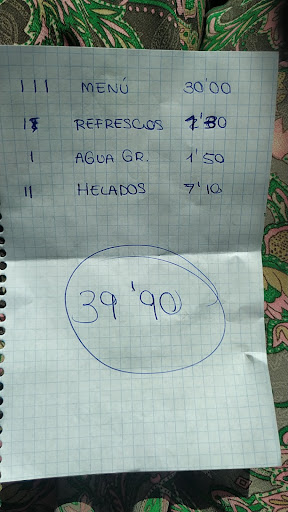 III MENÚ 30'00
I REFRESCOS 1'30
I AGUA GR. 1'50
II HELADOS 7'10
39'90